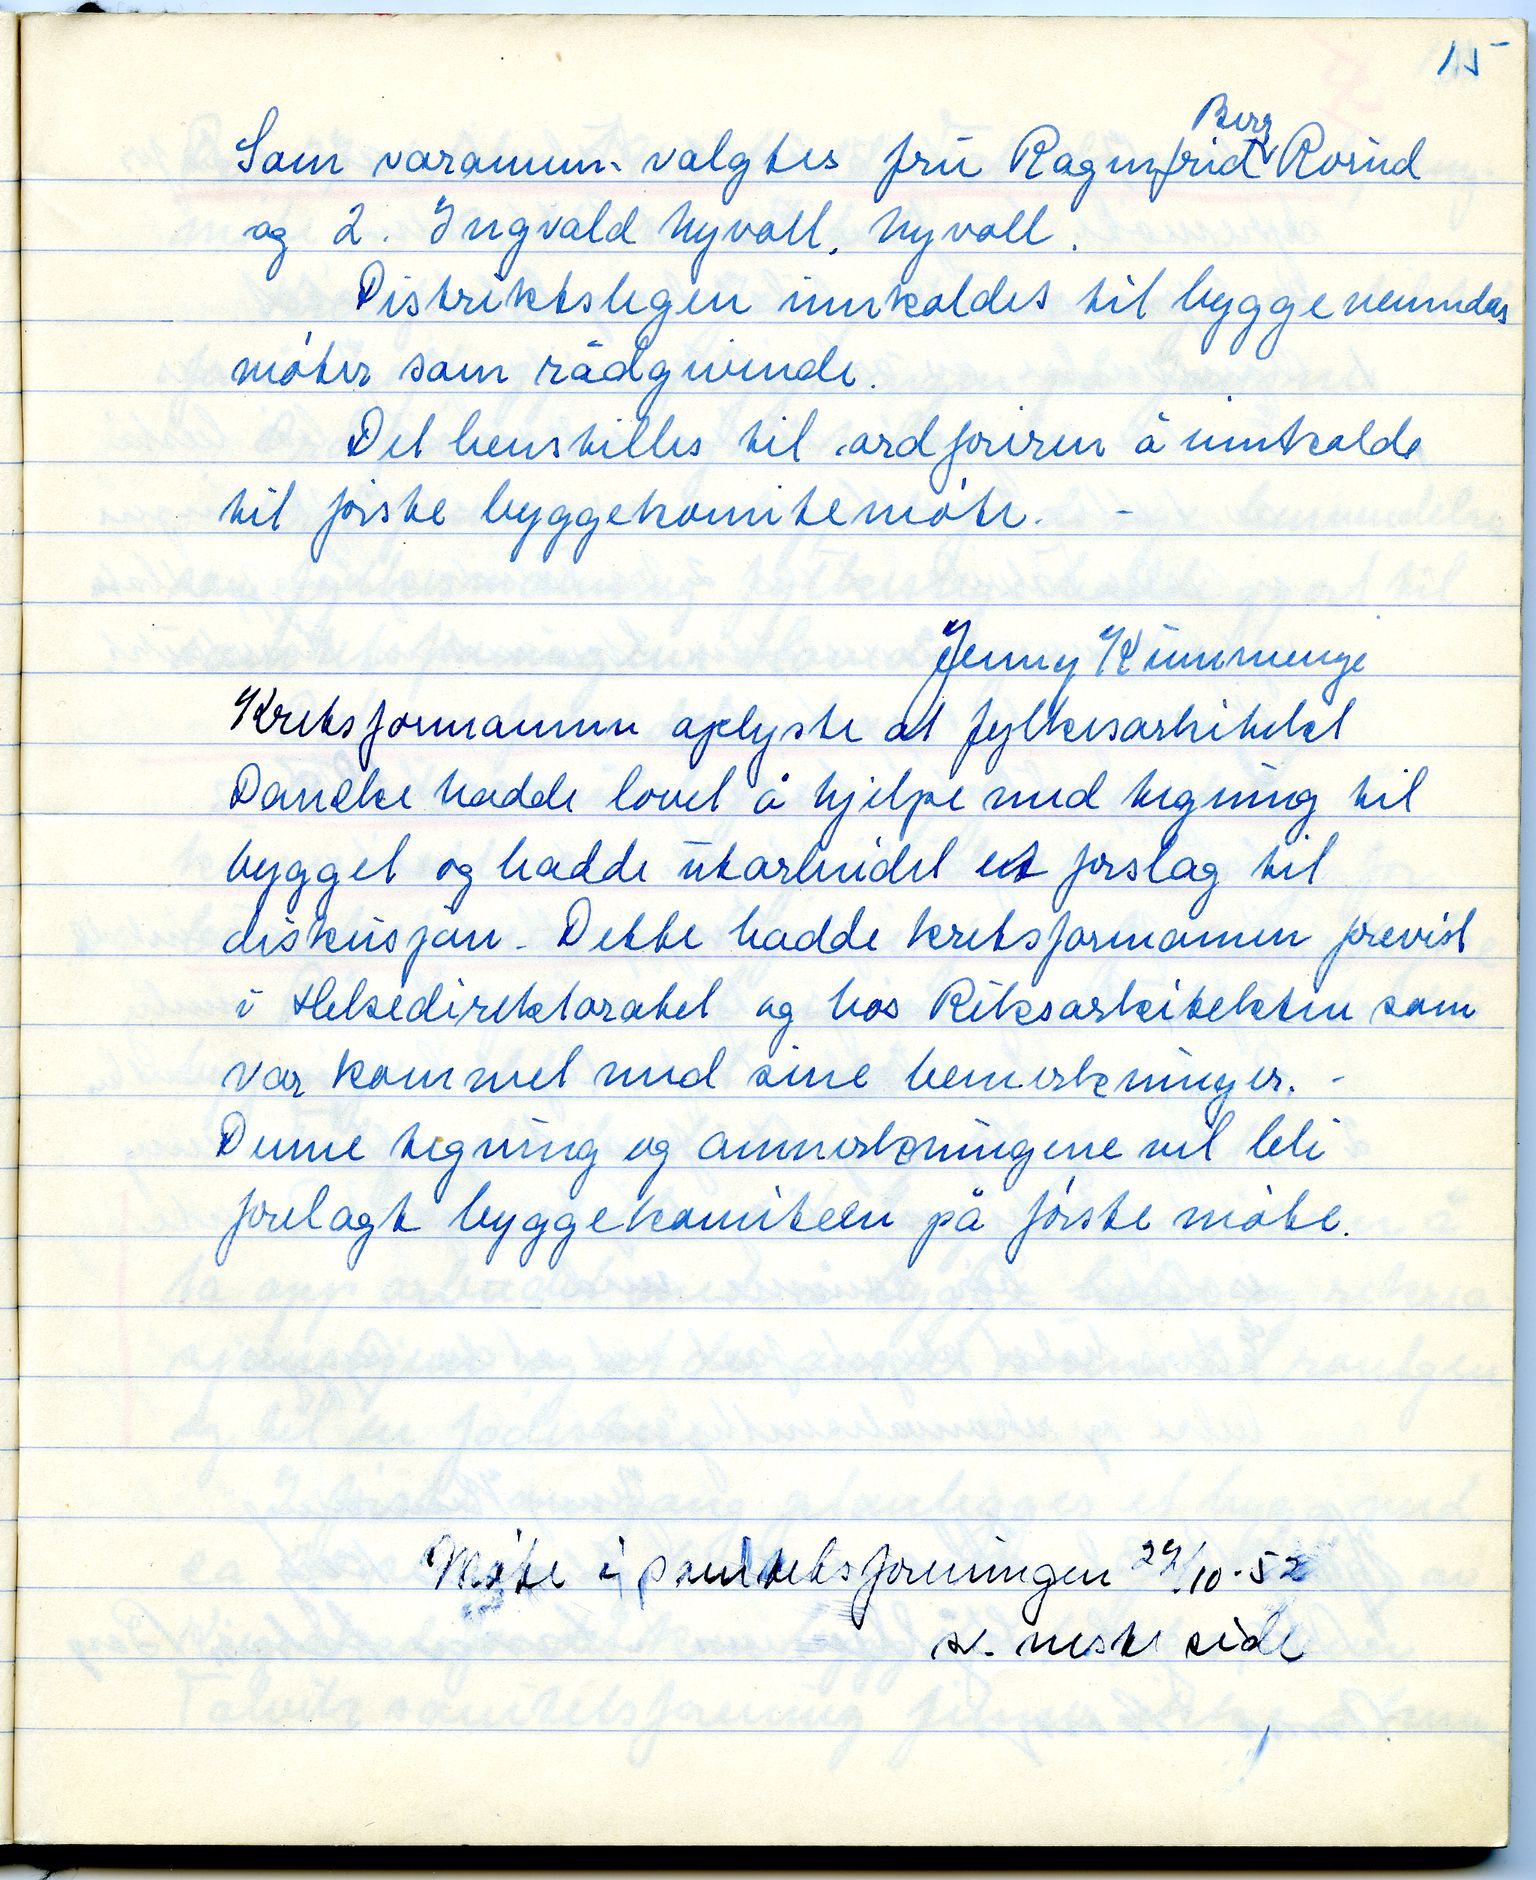 15
Berg
Som varamenn valgtes fru Ragnfrid Rosud
og 2. Ingvald Nyvoll, Nyvoll.
Distriktslegen innkaldes til byggenemndas
møter som rådgivende.
Det henstilles til ordføreren å innkalde
til første byggekomitemøte. -
Jenny Kummeneje
Kretsformannen oplyste at fylkesarkitekt
Dancke hadde lovet å hjelpe med tegning til
bygget og hadde utarbeidet et forslag til
diskusjon - Dette hadde kretsformannen forevist
i Helsedirektoratet og hos Riksarkitekten som
var kommet med sine bemerkninger. -
Denne tegning og anmerkningene vil bli
forelagt byggekomiteen på første møte.
Møte i sanitetsforeningen 29/10-52
s. neste side